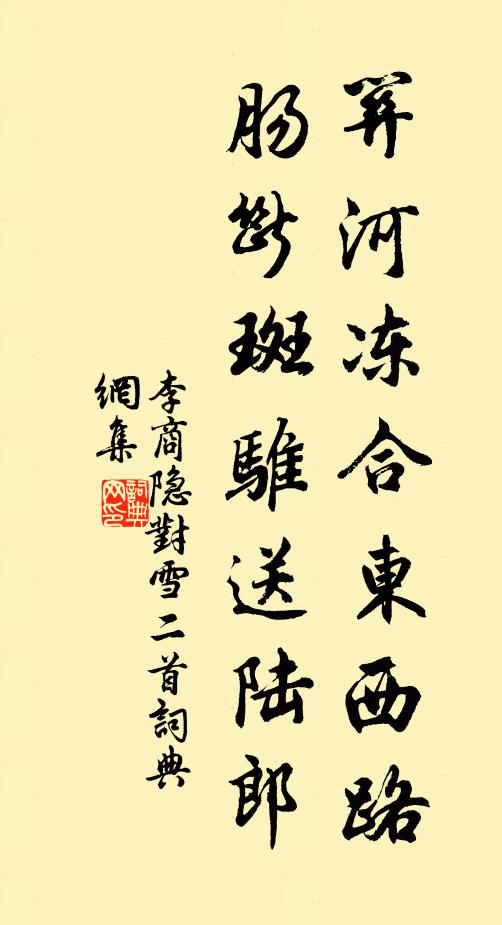 关河冻合東西路
肠断斑騅送陆郎
李商隐對雪二首詞典
網集
詞典
网印